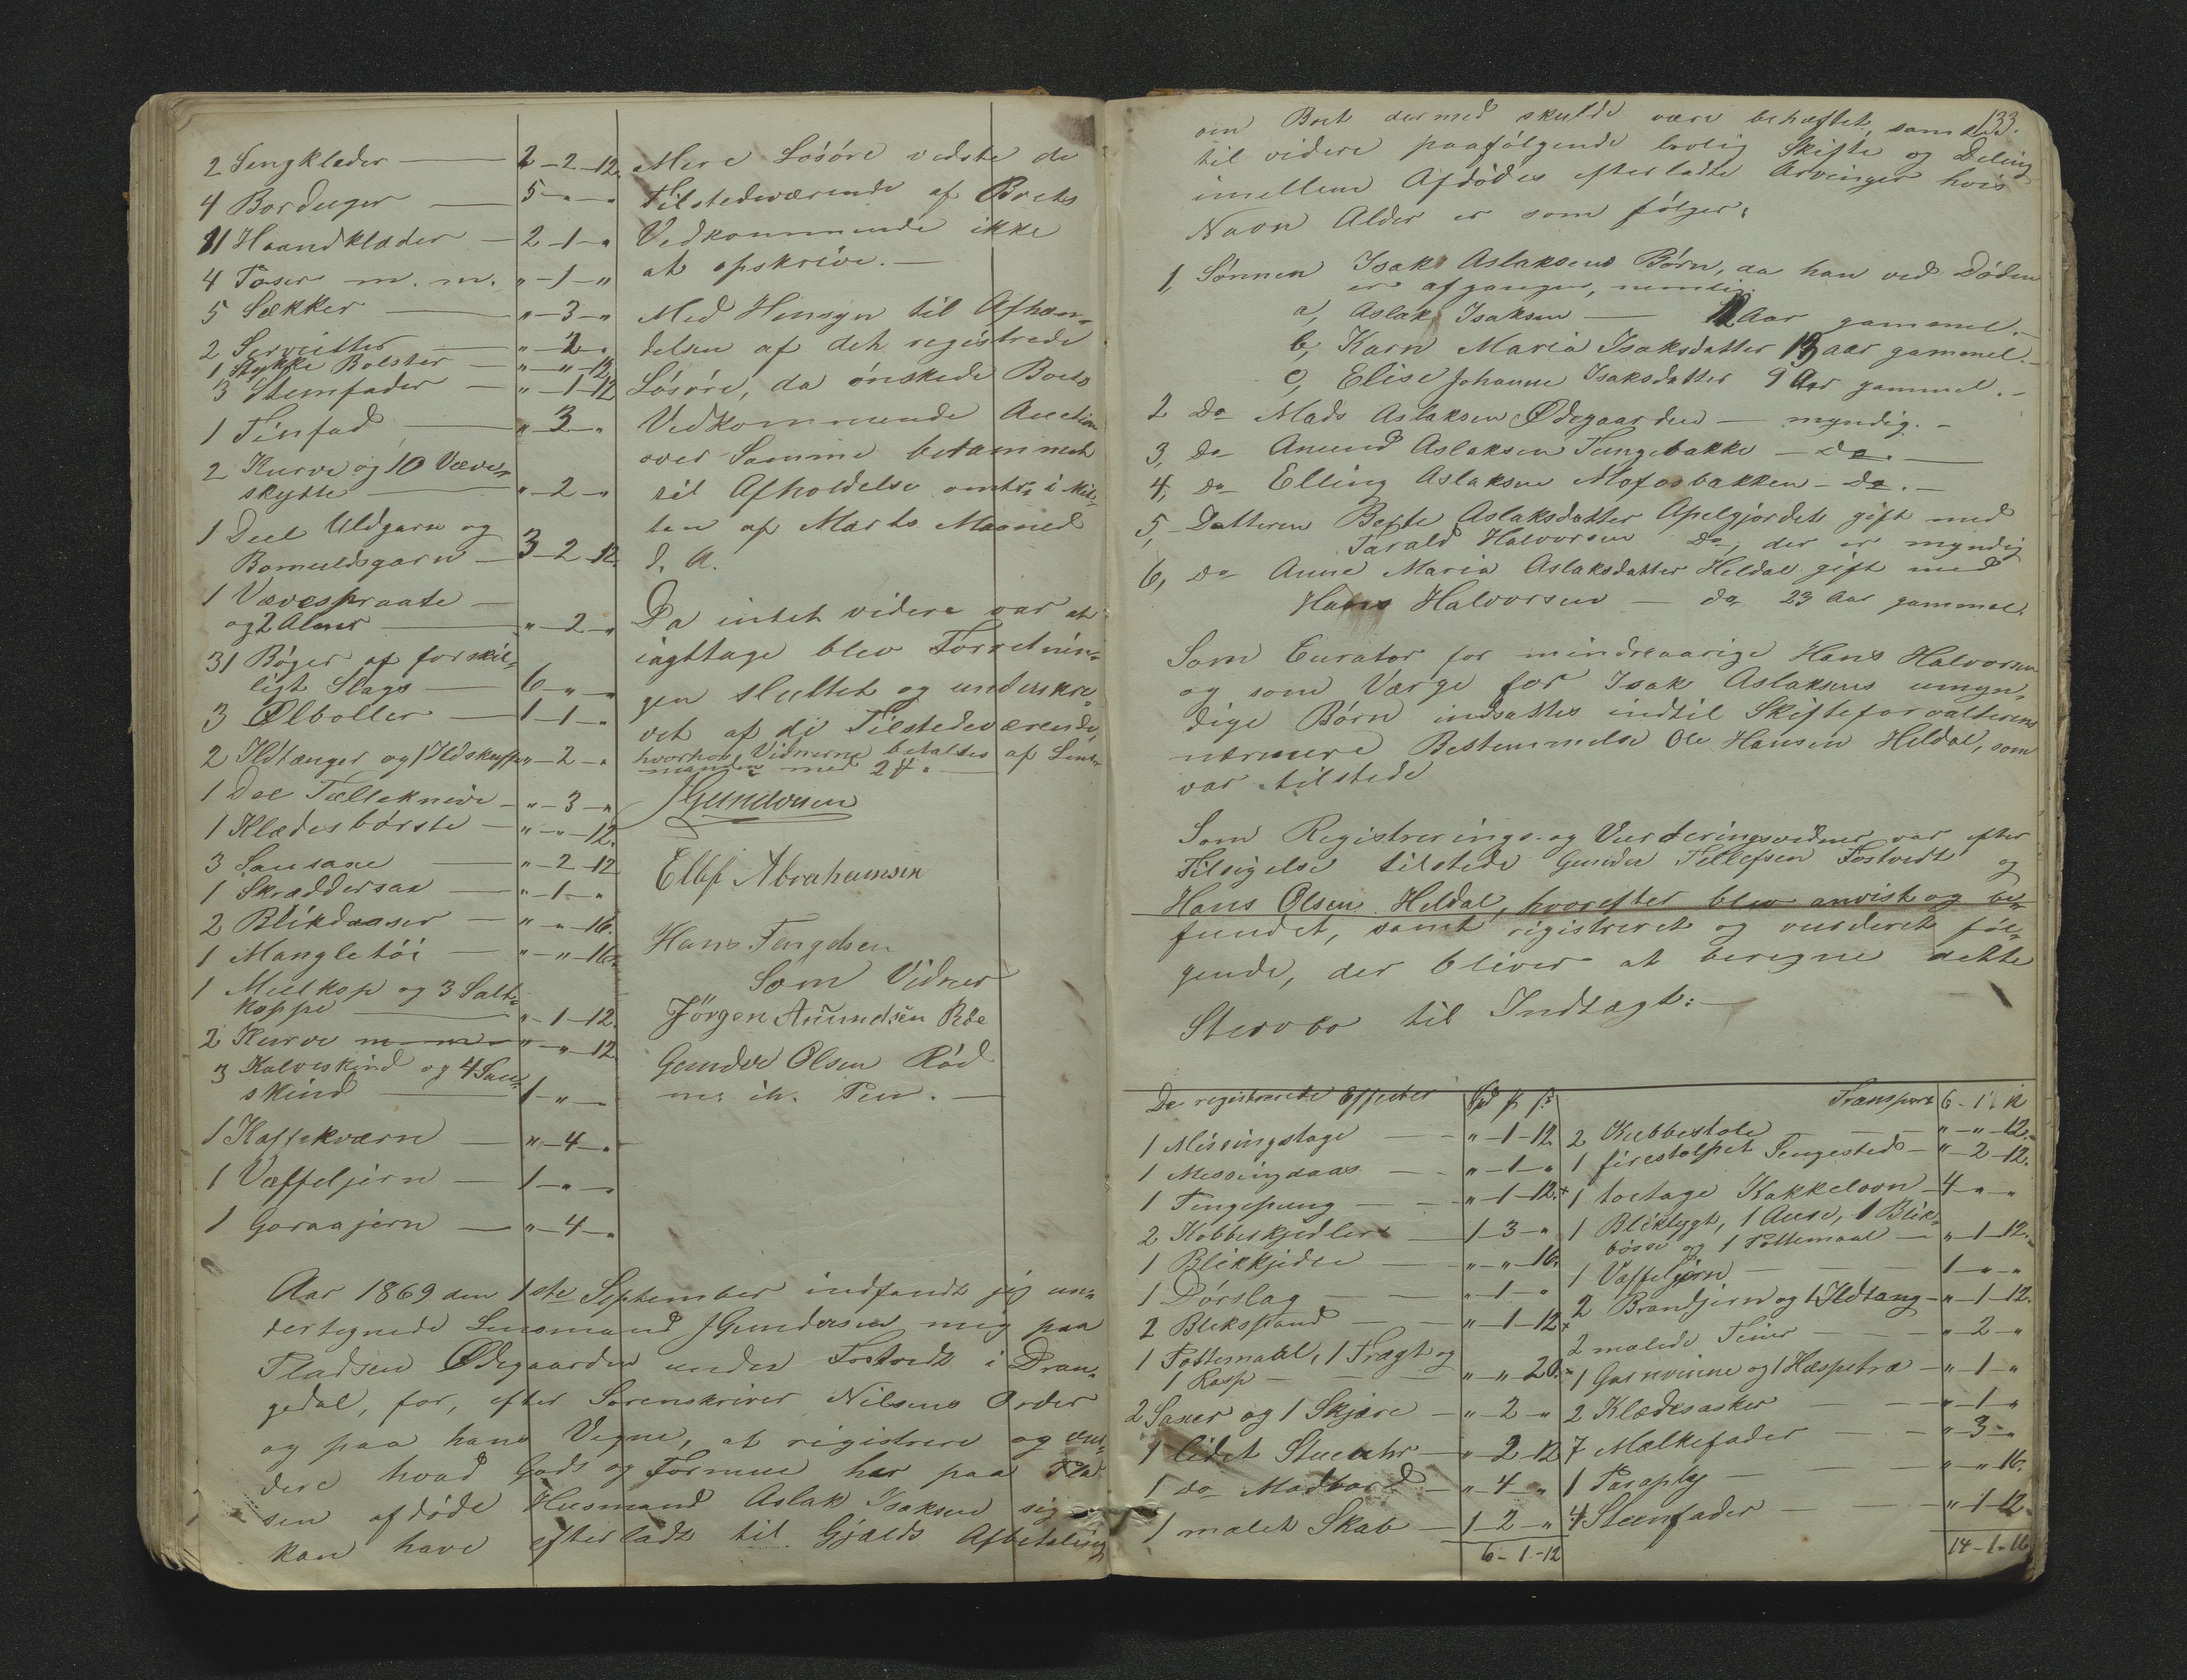 2 Sengklæder — 2-2-12.
4 Borduger — 5-"-"
11 Haandklæder — 2-1-"
4 Poser m. m. "-1-"
5 Sækker — "-3-"
2 Servietter — "-2-"
1 Stykke Bolster — "-"-12
3 Steenfader — "-1-12
1 Tinfad — "-3-"
2 Kurve og 10 Væve-
skytte — "-2-"
1 Deel Uldgarn og
Bomuldsgarn — 3-2-12.
1 Væve —
og 2 — "-2-"
31 Bøger af forskjel-
ligt Slags — 6-"-"
3 Ølboller — 1-1-"
2 Ildtænger og 1 Ildskuffe "-2-"
1 Deel Tælleknive — "-3-"
1 Klædesbørste — "-"-12.
3 Sausaxe — "-2-12
1 Skræddersax — "-1-"
2 Blikdaaser — "-"-16.
1 Mangletøi — "-"-16.
1 Meelkop og 3 Salt-
koppe — "-1-12.
2 Kurve m-m— "-"-12
3 Kalveskind og 4 Saue-
skind — 1-"-"
1 Kaffekværn — "-4-"
1 Vaffeljern — 1-"-"
1 Goraajern — "-4-"
Mere Løsøre vidste de
tilstedeværende af Boets
Vedkommende ikke
at opskrive. —
Med Hensyn til Afhæn-
delsen af det registrede
Løsøre, da ønskede Boets
Vedkommende Auction
over Samme berammet
til Afholdelse omtr. i Mid-
ten af Marts Maaned
d. A.
Da intet videre var at
iagttage blev Forretnin-
gen sluttet og underskre-
vet af de Tilstedeværende,
hvorhos Vidnerne betaltes af Lens-
manden med 2 ₰. —
J Gundersen
Ellef Abrahamsen
Hans Tengelsen
Som Vidner
Jörgen Anundsen Röe
Gunder Olsen Rød
m. ih. Pen. —
Aar 1869 den 1ste September indfandt jeg un-
dertegnede Lensmand J Gundersen mig paa
Pladsen Ødegaarden under Tostvedt i Dran-
gedal, for, efter Sorenskriver Nilsens Order
og paa hans Vegne, at registrere og vur-
dere hvad Gods og Formue her paa Plad-
sen afdøde Husmand Aslak Isaksen sig
kan have efterladt til Gjælds Afbetaling
133.
om Boet dermed skulde være behæftet, samt
til videre paafølgende lovlig Skifte og Deling
imellem Afdødes efterladte Arvinger hvis
Navn Alder er som følger:
1, Sønnen Isak Aslaksens Børn, da han ved Døden
er afgangen, nemlig:
a, Aslak Isaksen — 12 Aar gammel. —
b, Karn Maria Isaksdatter 13 aar gammel. —
c, Elise Johanne Isaksdatter 9 Aar gammel. —
2 do Mads Aslaksen Ødegaarden — myndig. —
3, do Anund Aslaksen Tungebakke — do. —
4, do Elling Aslaksen Mofosbakken — do. —
5, Datteren Berte Aslaksdatter Apelgjordet gift med
Tarald Halvorsen do, der er myndig
6, do Anne Maria Aslaksdatter Heldal gift med
Hans Halvorsen — do 23 Aar gammel.
Som Curator for mindreaarige Hans Halvorsen
og som Værge for Isak Aslaksens umyn-
dige Børn indsattes indtil Skifteforvalterens
nærmere Bestemmelse Ole Hansen Heldal, som
var tilstede
Som Registrerings- og Vurderingsvidner var efter
Tilsigelse tilstede Gunder Tellefsen Tostvedt og
Hans Olsen Heldal, hvorefter blev anvist og be-
fundet, samt registreret og vurderet føl-
gende, der bliver at beregne dette
Stervbo til Indtægt: —
De registrerede Effecter Spd ₰ s.
1 Missingstage — "-1-12
1 Messingdaas — "-1-"
1 Pengepung — "-1-12.
2 Kobbeskjedler — 1-3-"
1 Blikkjedel — "-"-16.
1 Dörslag — "-1-"
2 Blikspand — "-1-12
1 Pottemaal, 1 Tragt og
1 Rasp — "-"-20.
2 Saxer og 1 Skjære — "-2-"
1 lidet Stueuhr — "-2-12
1 do Madbord — "-4-"
1 malet Skab — 1-2-"
6-1-12
Transport 6-1-12
2 Kubbestole — "-"-12.
1 firestolpet Sengested — "-2-12.
1 toetage Kakkelovn — 4-"-"
1 Bliklygt, 1 Ause, 1 Blik-
bøsse og 1 Pottemaal — "-1-12.
1 Vaffeljern — 1-"-"
2 Brandjern og 1 Ildtang — "-1-12.
2 malede Tiner — "-2-"
1 Garnvinne og 1 Haspetræ — "-1-"
2 Klædesasker — "-1-"
7 Mælkefader — "-3-"
1 Paraply — "-"-16.
4 Steenfader — "-1-12.
14-1-16